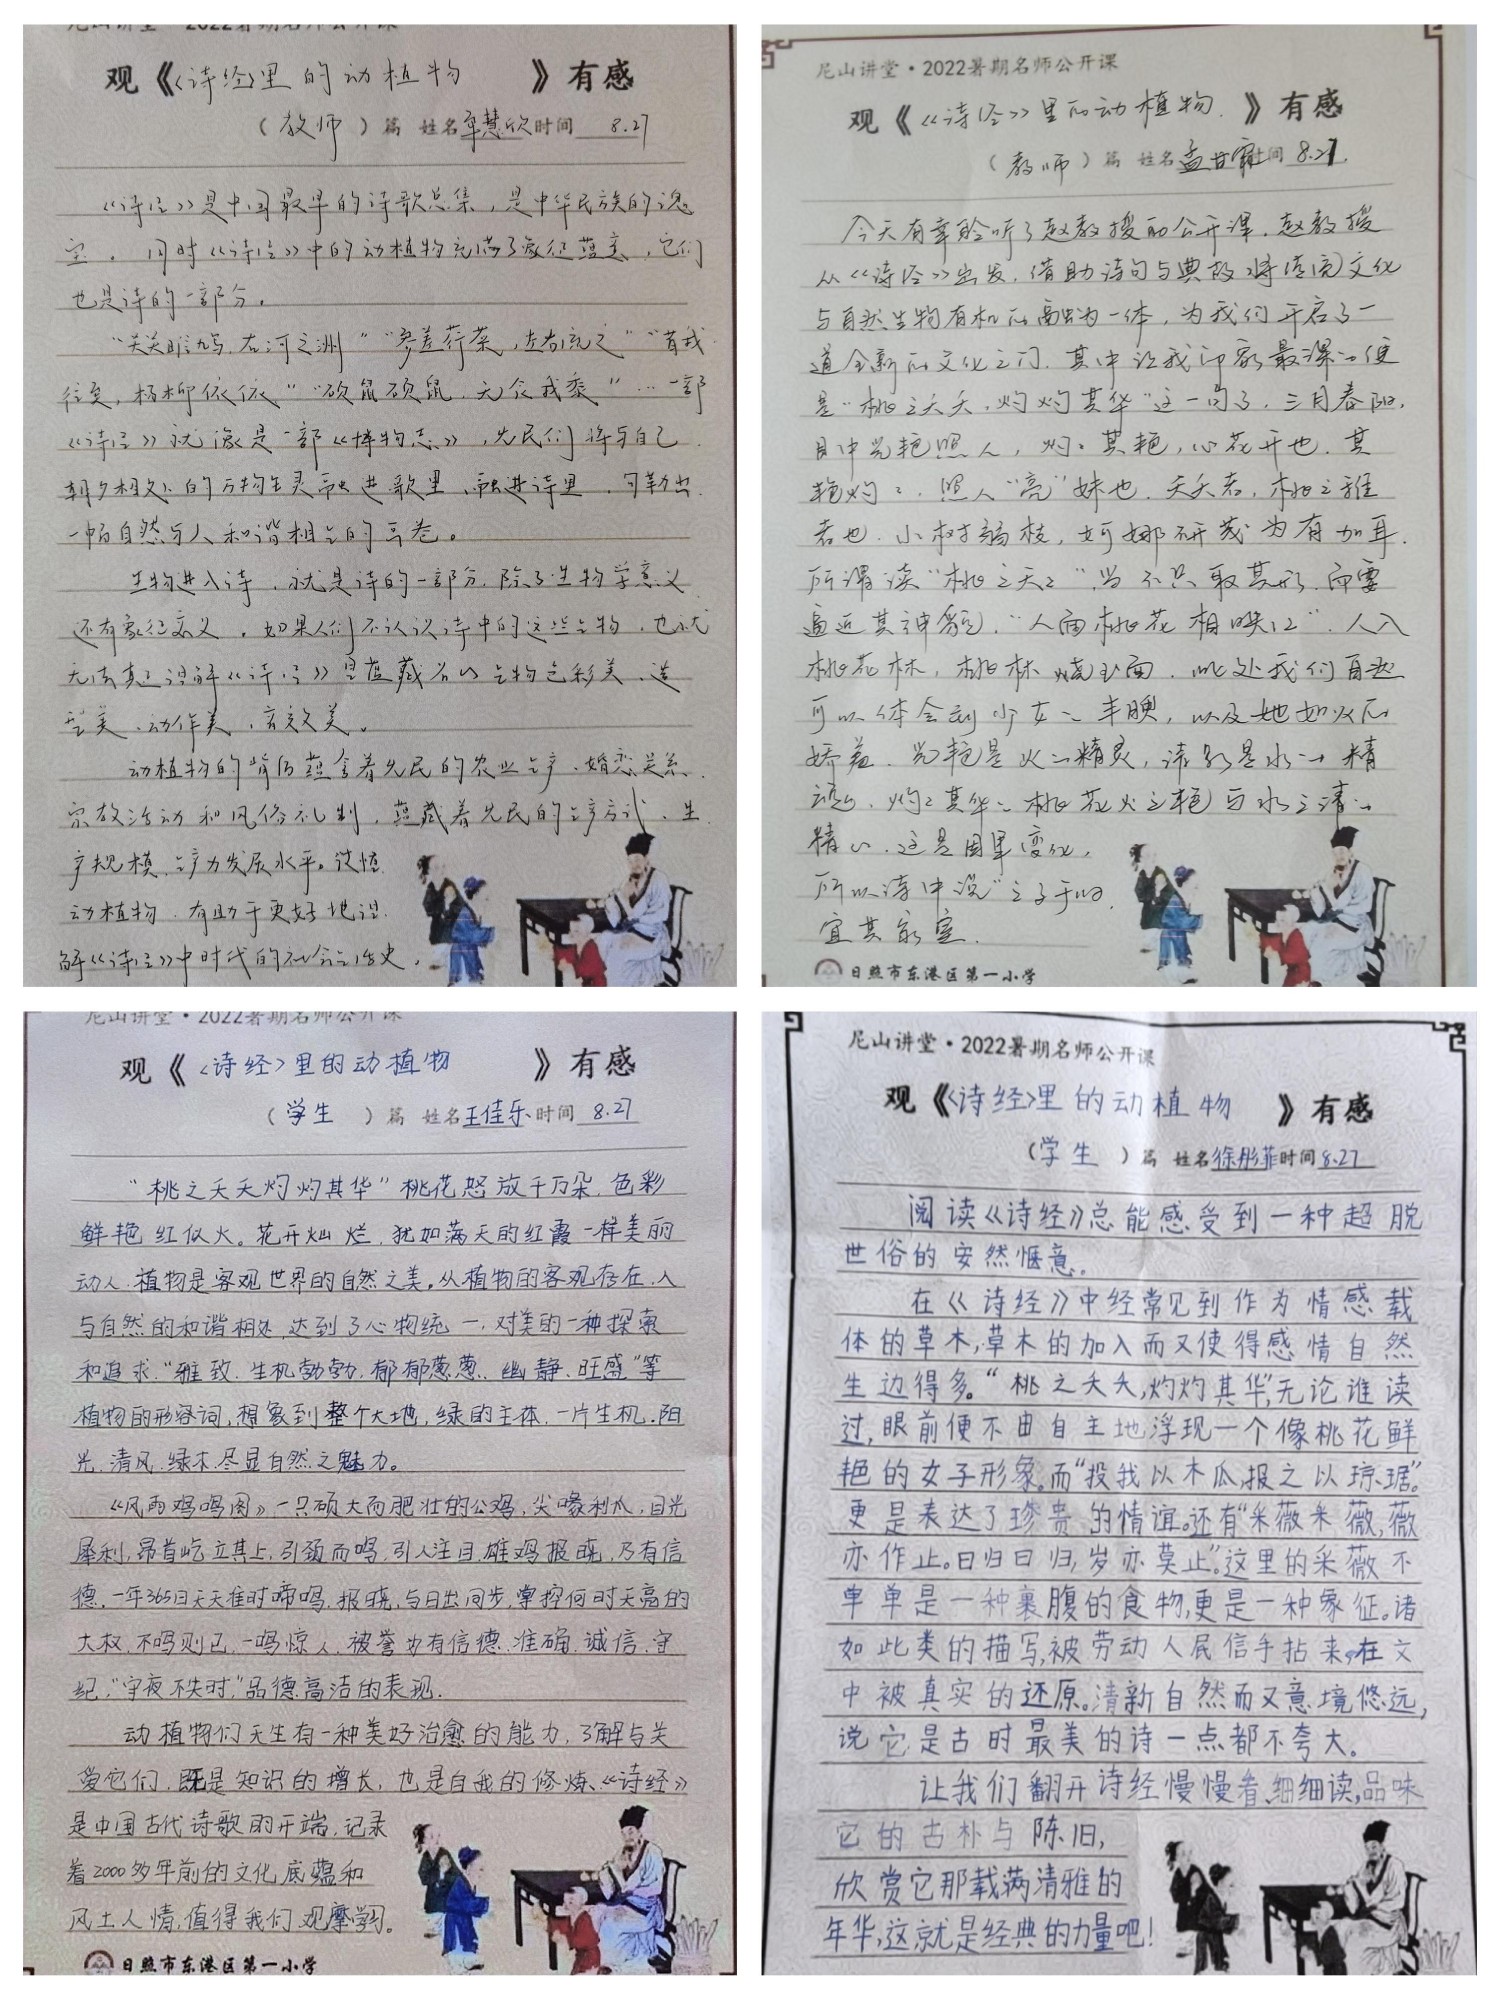 尼山讲堂·2022暑期名师公开课
观《《诗经》里的动植物》有感
(教师)篇 姓名 慧欣 时间 8.27
《诗经》是中国最早的诗歌总集,是中华民族的瑰
宝。同时《诗经》中的动植物充满了象征蕴意,它们
也是诗的一部分。
"关关雎鸠,在河之洲""参差荇菜,左右流之""昔我
往矣,杨柳依依""硕鼠硕鼠,无食我黍"…一部
《诗经》就像是一部《博物志》,先民们将与自己
朝夕相处的万物生灵融进歌里、融进诗里,勾勒出
一幅自然与人和谐相生的画卷。
生物进入诗,就是诗的一部分,除了生物学意义
还有象征意义。如果人们不认识诗中的这些生物,也就
无法真正理解《诗经》里蕴藏着的生物色彩美、造
型美、动作美、音效美。
动植物的背后蕴含着先民的农业生产、婚恋关系、
宗教活动和风俗礼制,蕴藏着先民的生产方式、生
产规模、生产力发展水平。读懂
动植物,有助于更好地理
解《诗经》中时代的社会生活史。
尼山讲堂·2022暑期名师公开课
观《《诗经》里的动植物》有感
(教师)篇 姓名 孟甘霖 时间 8.27
今天有幸聆听了赵教授的公开课,赵教授
从《诗经》出发,借助诗句与典故将传统文化
与自然生物有机的融为一体,为我们开启了一
道全新的文化之门,其中让我印象最深的便
是"桃之夭夭,灼灼其华"这一句了,三月春阳,
目中光艳照人,灼灼其艳,心花开也,其
艳灼灼,照人"亮"妹也,夭夭者,桃之雅
者也,小树弱枝,婀娜研茂为有加耳,
所谓读"桃之夭夭",当不只取其形,而要
逼近其神貌,"人面桃花相映红",人入
桃花林,桃林烧红面,此处我们自然
可以体会到少女的丰腴,以及她如火的
娇羞,光艳是火的精灵,清影是水的精
魂,灼灼其华的桃花火之艳与水之清的
精的,这是因果变化,
所以诗中说"之子于归,
宜其家室。
日照市东港区第一小学
尼山讲堂·2022暑期名师公开课
观《〈诗经〉里的动植物》有感
(学生)篇 姓名 王佳乐 时间 8.27
"桃之夭夭灼灼其华"桃花怒放千万朵,色彩
鲜艳红似火。花开灿烂,犹如满天的红霞一样美丽
动人,植物是客观世界的自然之美。从植物的客观存在,人
与自然的和谐相处,达到了心物统一,对美的一种探索
和追求."雅致、生机勃勃、郁郁葱葱、幽静、旺盛"等
植物的形容词,想象到整个大地,绿的主体,一片生机.阳
光,清风,绿木,尽显自然之魅力。
《风雨鸡鸣图》一只硕大而肥壮的公鸡,尖喙利爪,目光
犀利,昂首屹立其上,引颈而鸣,引人注目,雄鸡报晓,乃有信
德,一年365日天天准时啼鸣,报晓,与日出同步,掌控何时天亮的
大权,不鸣则已,一鸣惊人,被誉为有信德、准确、诚信、守
纪,"守夜不失时,"品德高洁的表现.
动植物们天生有一种美好治愈的能力,了解与关
爱它们,既是知识的增长,也是自我的修炼、《诗经》
是中国古代诗歌的开端,记录
着2000多年前的文化底蕴和
风土人情,值得我们观摩学习。
日照市东港区第一小学
尼山讲堂·2022暑期名师公开课
观《〈诗经〉里的动植物》有感
(学生)篇 姓名 徐彤菲 时间 8.27
阅读《诗经》总能感受到一种超脱
世俗的安然惬意。
在《诗经》中经常见到作为情感载
体的草木,草木的加入而又使得感情自然
生边得多。"桃之夭夭,灼灼其华",无论谁读
过,眼前便不由自主地浮现一个像桃花鲜
艳的女子形象。而"投我以木瓜,报之以琼琚."
更是表达了珍贵的情谊。还有"采薇采薇,薇
亦作止。曰归曰归,岁亦莫止"。这里的采薇不
单单是一种裹腹的食物,更是一种象征。诸
如此类的描写,被劳动人民信手拈来,在文
中被真实的还原。清新自然而又意境悠远,
说它是古时最美的诗一点都不夸大。
让我们翻开诗经慢慢看、细细读,品味
它的古朴与陈旧,
欣赏它那载满清雅的
年华,这就是经典的力量吧!